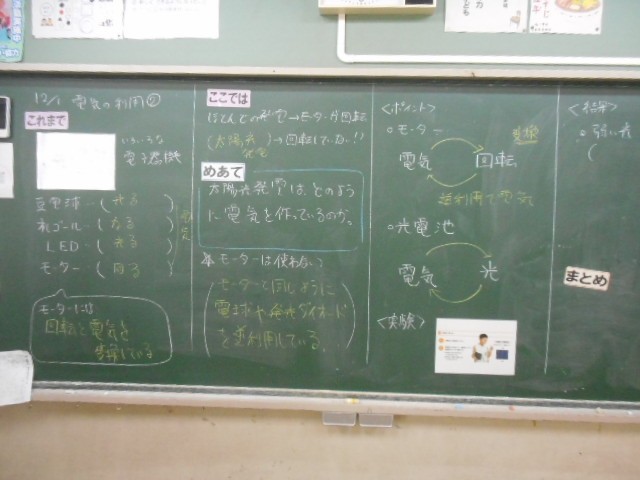 12/1 電気の利用②
これまで
いろいろな
電子器機
豆電球‥(光る)
オルゴール‥(なる)
LED‥(光る)
モーター‥(回る)
電気
モーターは
回転と電気を
変換している
ここでは
ほとんどの発電→モーターが回転
(太陽光発電)→回転していない!!
めあて
太陽光発電は、どのよう
に電気を作っているのか。
モーターは使わない?
モーターと同じように
電球や発光ダイオード
を逆利用している
<ポイント>
○モーター
変換
電気 回転
逆利用で電気
○光電池
電気 光
<実験>
<結果>
まとめ